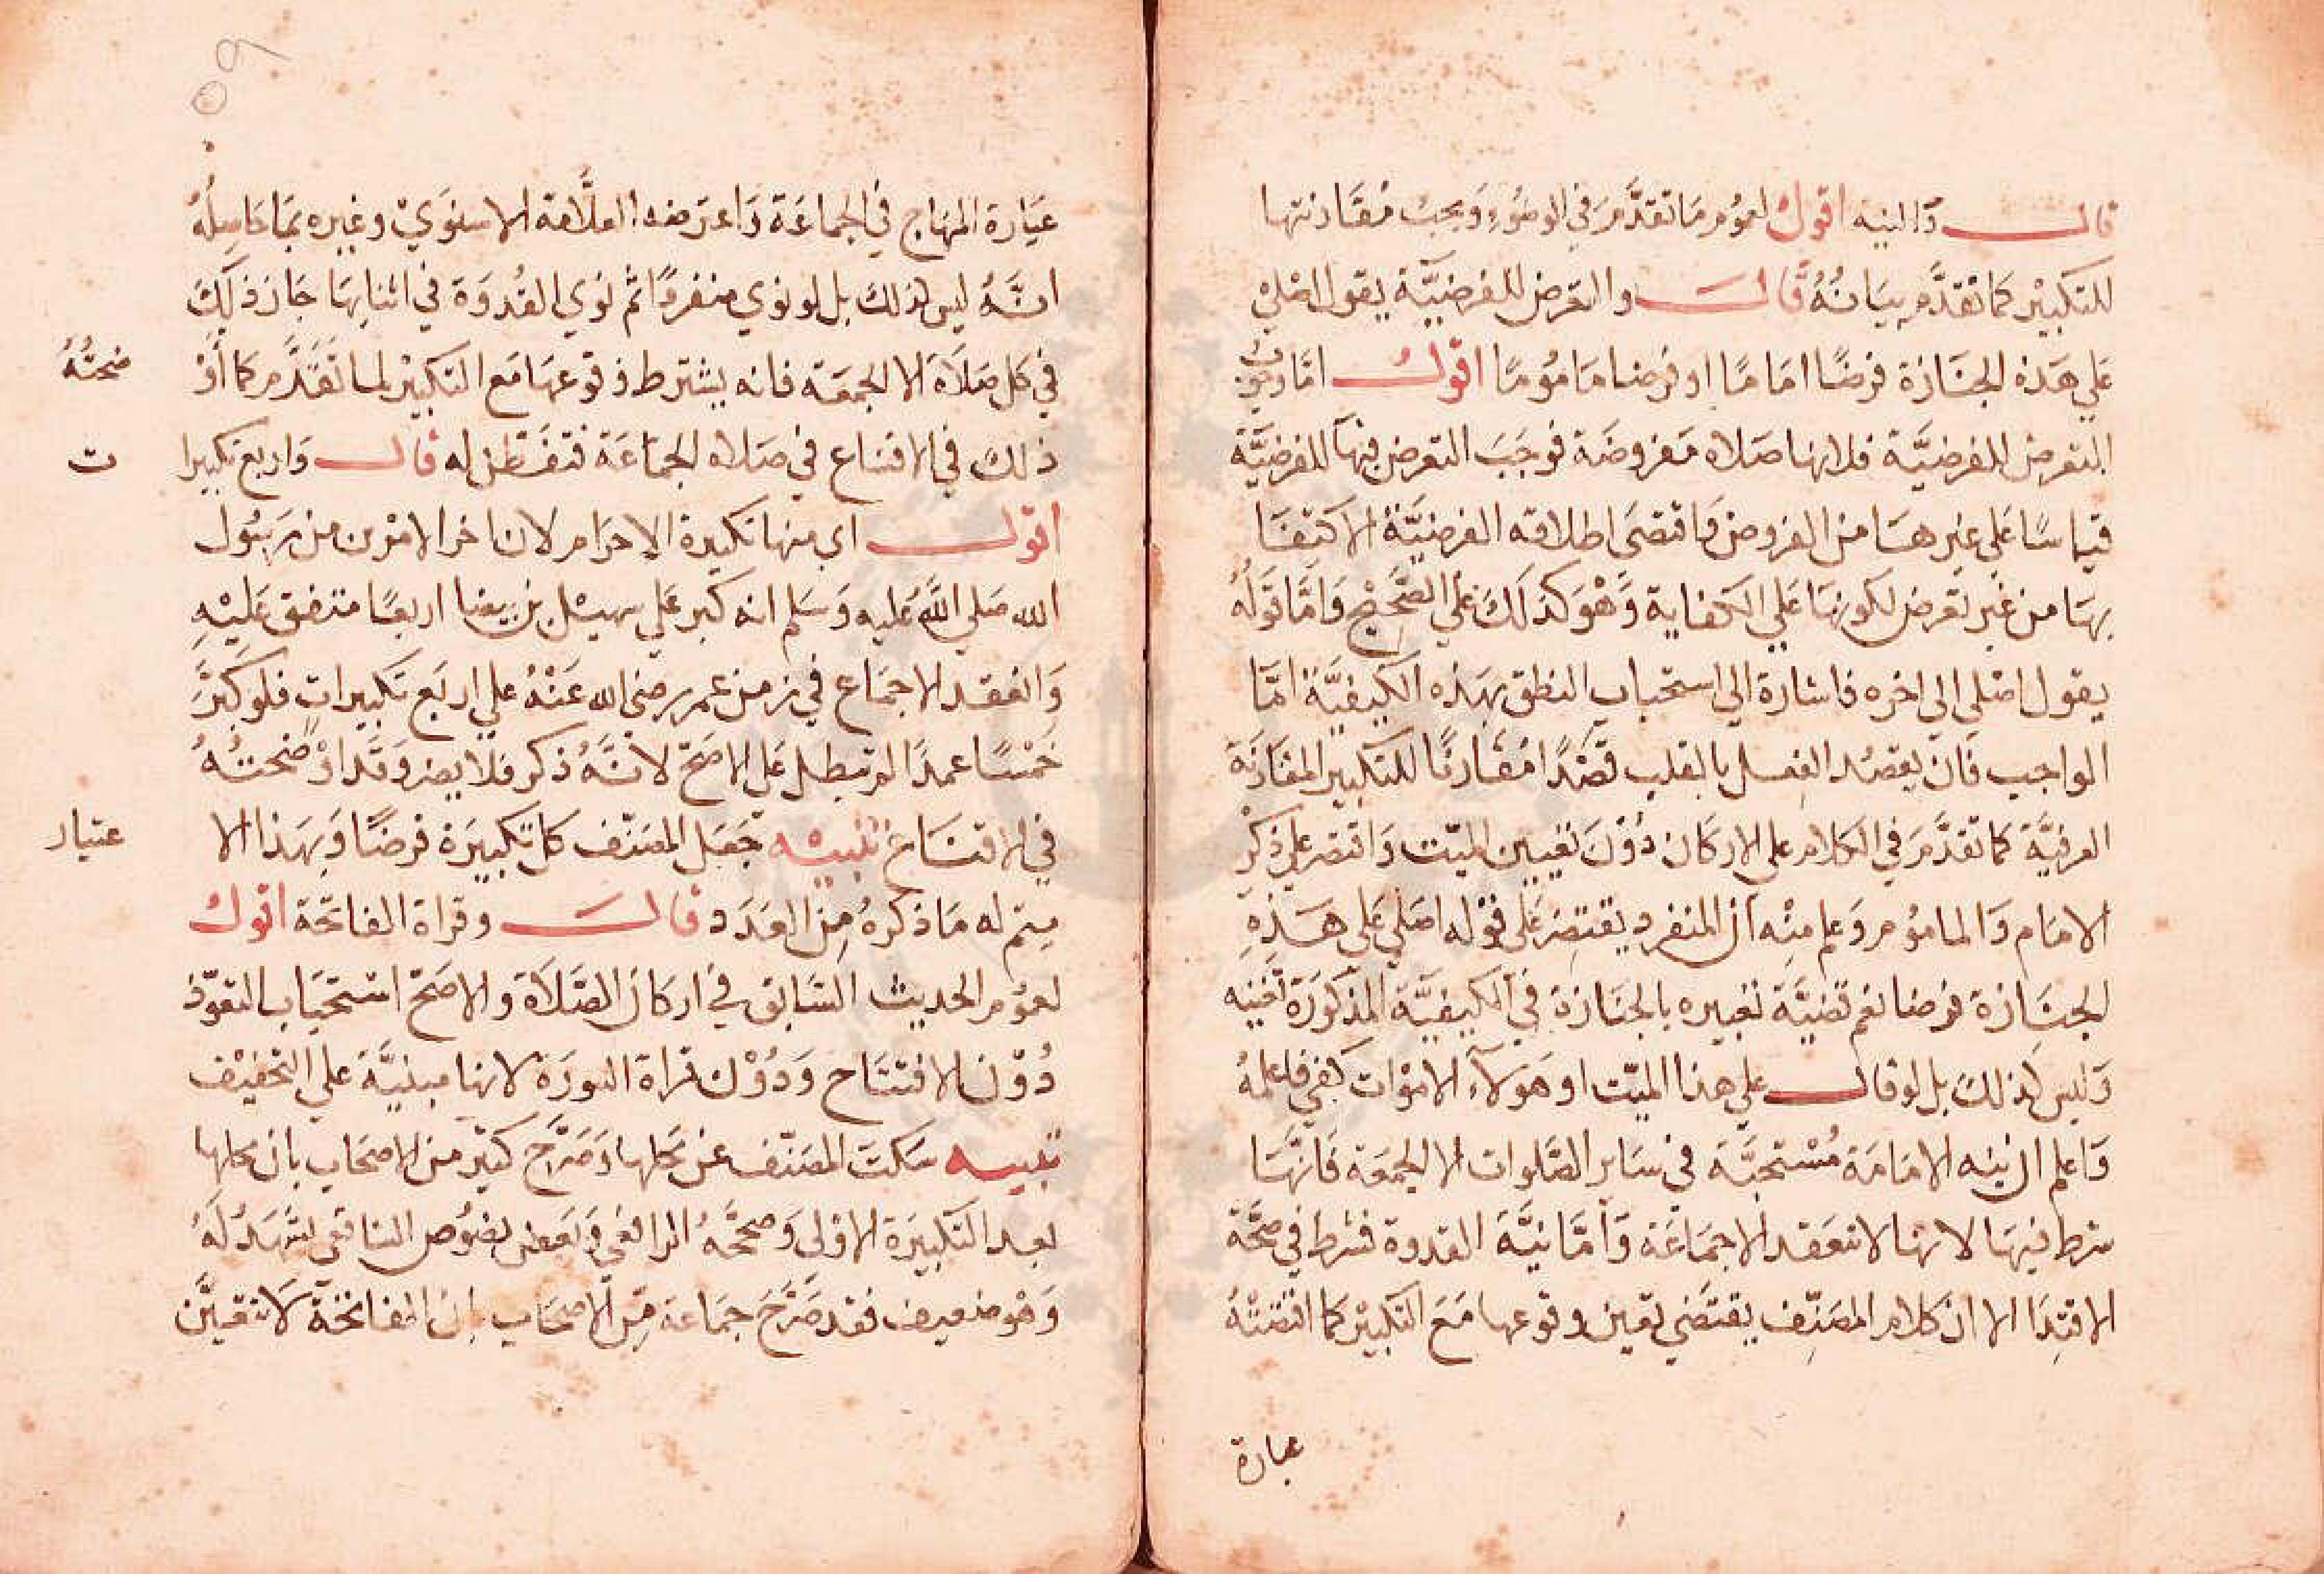 قال والنيه اقول لعموم ما تقدَّم في الوضوءِ ويجبُ مُقَارنتها
للتكبيْر كما تقدَّم بيَانُهُ قال والتعرض للفرضيَّة يقول اصْلي
عَلي هَذه الجنَازة فرضًا امَامًا او فرضا مَامُومًا اقول امَّا وجوب
التعرض للفرضيَّة فلانها صَلاه مَفروضَة فوجَبَ التعرض فيهَا للفرضيَّة
قياسًا عَلي غيرهَا من الفروض وَاقتضَى اطلاقه الفرضيَّة الاكتفَا
بهَا من غير تعَرض لكونهَا عَلي الكفاية وَهْوَ كذلَكَ عَلي الصَّحِيْحِ وَامَّا قَولُهُ
يقول اصَلي الي اخره فاشارة الي استحباب النطق بهَذِه الكيفيَّة امَّا
الواجب فَان يقصُد الفعل بالقلب قصْدًا مُقَارنًا للتكبير المقَارنَة
العرفيَّة كما تقدَّمَ في الكلام على الاركان دُوْنَ تعْيين الميّت وَاقتصَر علي ذكْرِ
الامَام وَالمامُوم وَعلم منْه أن المنفرد يقتصِر عَلي قوْله اصَلي عَلى هَذِهِ
الجنَازة فرضا نعم قضيَّة تعْبيره بالجنَازة في الكيفيَّة المذكوَرَة تعْينه
وَليس كذلك بل لو قال علي هذا الميّت او هَولآءِ الامْوات كفي فاعلمْهُ
وَاعلم ان نيه الامَامَة مُسْتحبَّة في سَاير الصَّلوات الا الجمعَة فَانهَّا
شرط فيهَا لانها لا تنعَقد الا جمَاعَة وَأمَّا نيَّة القدوة فشرط في صحَّة
الاقتِدَا الا ان كلام المصَنِّف يقتضَي تعَين وقوعها مَعَ التكبيْر كما اقتضَتْهُ
عبارة
عبَارة المنهَاج في الجمَاعَة وَاعترضه العلَّامة الاسنوَيْ وغيره بمَا حَاصِلُهُ
انَّهُ ليس كذلك بل لو نوي منفردًا ثم نوي القُدوَة في اثنايهَا جَاز ذلكَ
في كل صَلَاة الا الجمعَة فانه يشترط وقوعهَا مَع التكبيْر لما تقَدَّم كما أوْ
ضحتُهُ
ذلكَ في الاقناع في صَلاه الجمَاعَة فتفَطن له قال وَاربَع تكبيرا
ت
اقول اي منها تكبيرة الاحرَام لان اخر الامْرين من رَسُول
الله صَلي اللَّهَ عَليه وَسَلم انه كبر عَلي سهيْل بن بيضا اربعًا متفق عَليْهِ
وَانعقد الاجمَاع في زمن عمر رضي الله عَنْهُ علي اربَع تكبيراتٍ فلو كبَّر
خمْسًا عمدًا لم تبطل عَلي الاصَحّ لانَّهُ ذكر فلا يضر وَقَد اوْضحتُهُ
في الاقنَاع تنبيْه جَعَل المصَنّف كل تكبيرَة فرضًا وَبهَذا الا
عتبار
يتم له مَا ذكرهُ مِن العَدَد قال وقراة الفاتحَة اقول
لعمُوم الحديث السَّابق في اركان الصَّلاَة والاصَحّ استحبَاب التعوّذ
دُوْن الافتتَاح وَدُوْن قراة السورَة لانها مبنيَّة علي التخفيْف
تنبيه سَكتَ المصَنّف عن محَلها وَصَرَّح كثيْر من الاصحَاب بان محلها
بعد التكبيرَة الاوْلى وَصححَّهُ الرافعي وَبَعض نصُوص الشافعي تشهَد لَهُ
وَهْو ضعيف فقد صَرَّح جمَاعة مِّن الأصحَاب بان الفاتحَة لَا تتعَيَّن